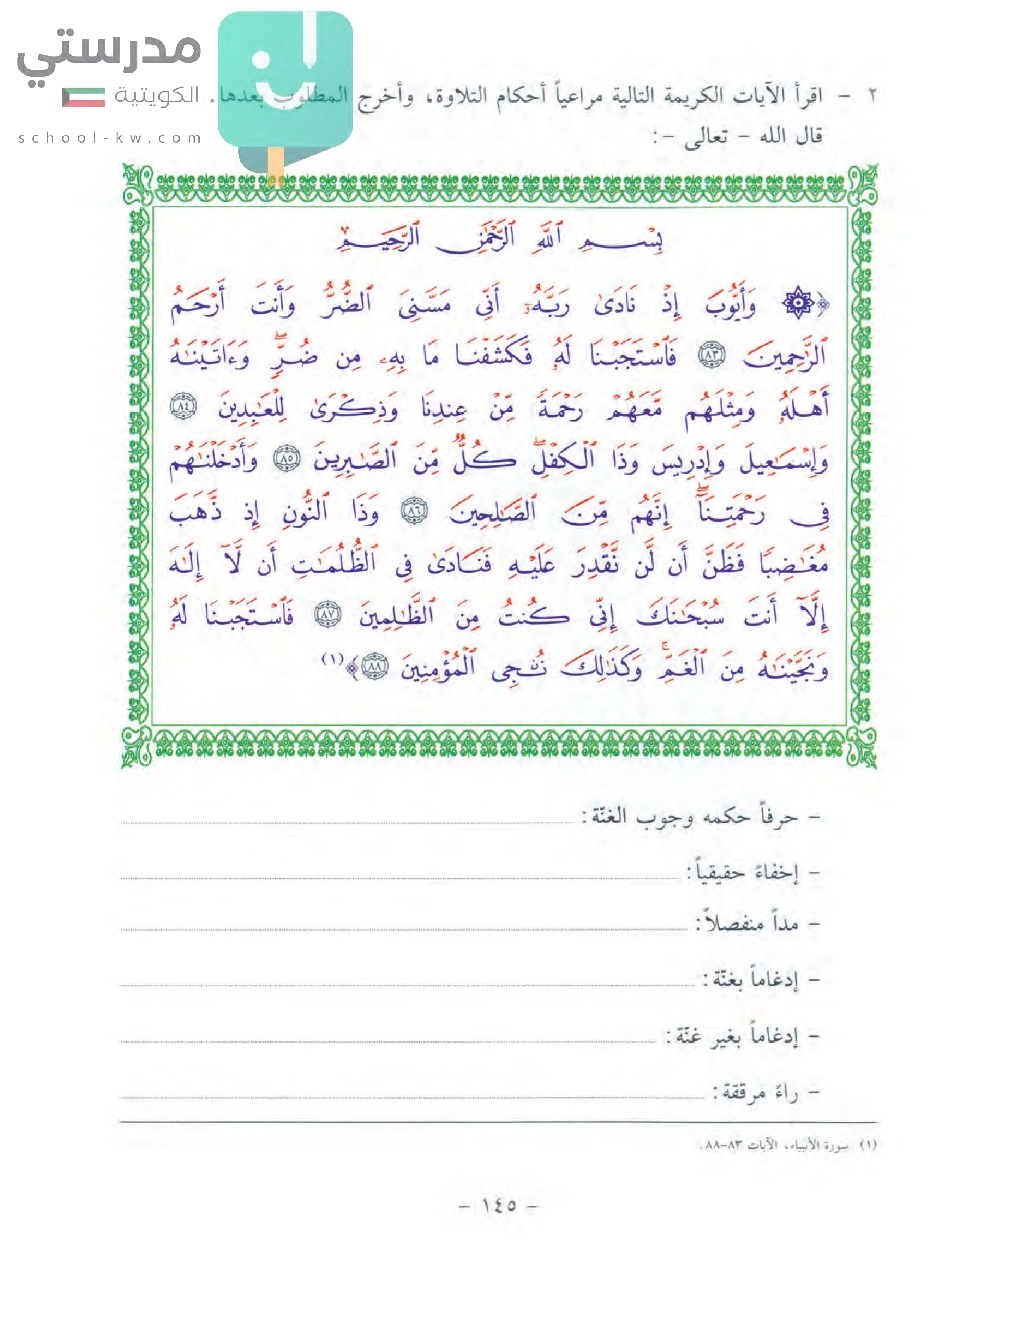 مدرستي
الكويتية
school-kw.com
٢ - اقرأ الآيات الكريمة التالية مراعياً أحكام التلاوة، وأخرج المطلوب بعدها.
قال الله - تعالى -:
بِسْمِ ٱللَّهِ ٱلرَّحْمَٰنِ ٱلرَّحِيمِ
﴿۞ وَأَيُّوبَ إِذْ نَادَىٰ رَبَّهُۥٓ أَنِّى مَسَّنِىَ ٱلضُّرُّ وَأَنتَ أَرْحَمُ
ٱلرَّٰحِمِينَ ٨٣ فَٱسْتَجَبْنَا لَهُۥ فَكَشَفْنَا مَا بِهِۦ مِن ضُرٍّۖ وَءَاتَيْنَٰهُ
أَهْلَهُۥ وَمِثْلَهُم مَّعَهُمْ رَحْمَةً مِّنْ عِندِنَا وَذِكْرَىٰ لِلْعَٰبِدِينَ ٨٤
وَإِسْمَٰعِيلَ وَإِدْرِيسَ وَذَا ٱلْكِفْلِۖ كُلٌّ مِّنَ ٱلصَّٰبِرِينَ ٨٥ وَأَدْخَلْنَٰهُمْ
فِى رَحْمَتِنَآۖ إِنَّهُم مِّنَ ٱلصَّٰلِحِينَ ٨٦ وَذَا ٱلنُّونِ إِذ ذَّهَبَ
مُغَٰضِبًا فَظَنَّ أَن لَّن نَّقْدِرَ عَلَيْهِ فَنَادَىٰ فِى ٱلظُّلُمَٰتِ أَن لَّآ إِلَٰهَ
إِلَّآ أَنتَ سُبْحَٰنَكَ إِنِّى كُنتُ مِنَ ٱلظَّٰلِمِينَ ٨٧ فَٱسْتَجَبْنَا لَهُۥ
وَنَجَّيْنَٰهُ مِنَ ٱلْغَمِّۚ وَكَذَٰلِكَ نُۨجِى ٱلْمُؤْمِنِينَ ٨٨﴾(١)
- حرفاً حكمه وجوب الغنّة:
- إخفاءً حقيقياً:
- مداً منفصلاً:
- إدغاماً بغنّة:
- إدغاماً بغير غنّة:
- راءً مرققة:
(١) سورة الأنبياء، الآيات ٨٣-٨٨.
- ١٤٥ -